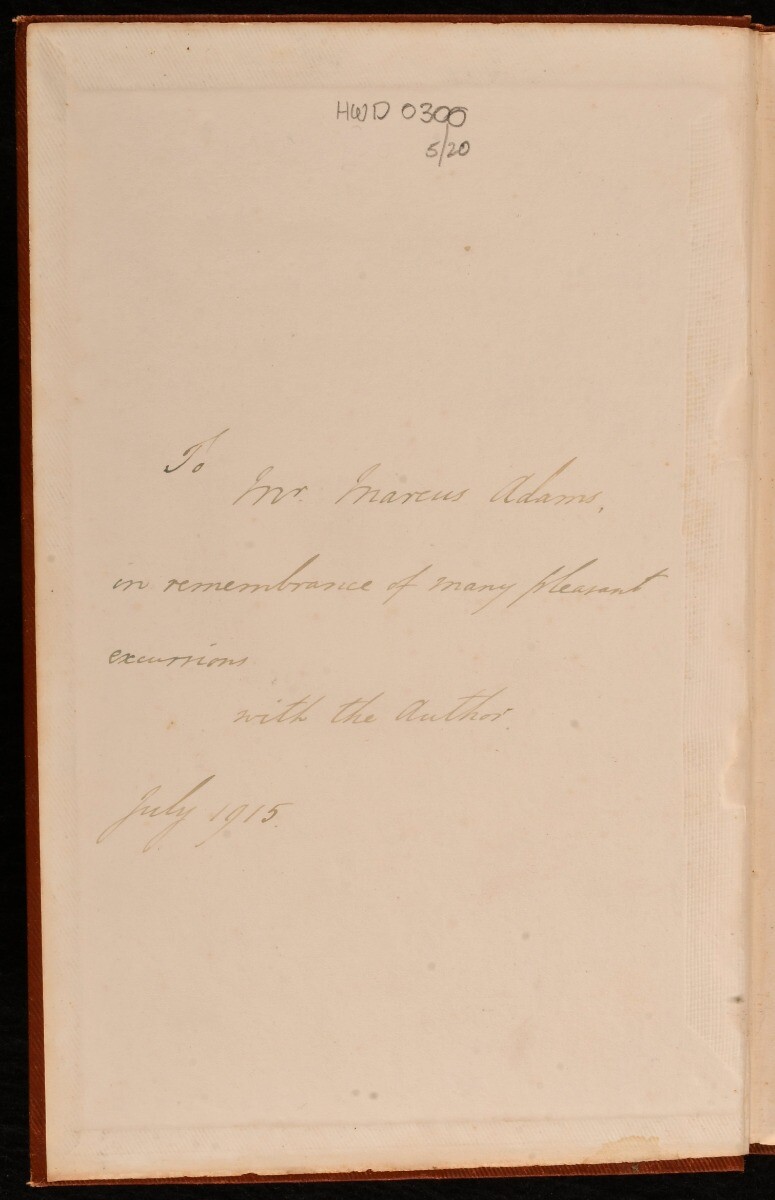 HWD 0300
5/20
To
Mr. Marcus Adams,
in remembrance of many pleasant
excursions
with the Author.
July 1915.